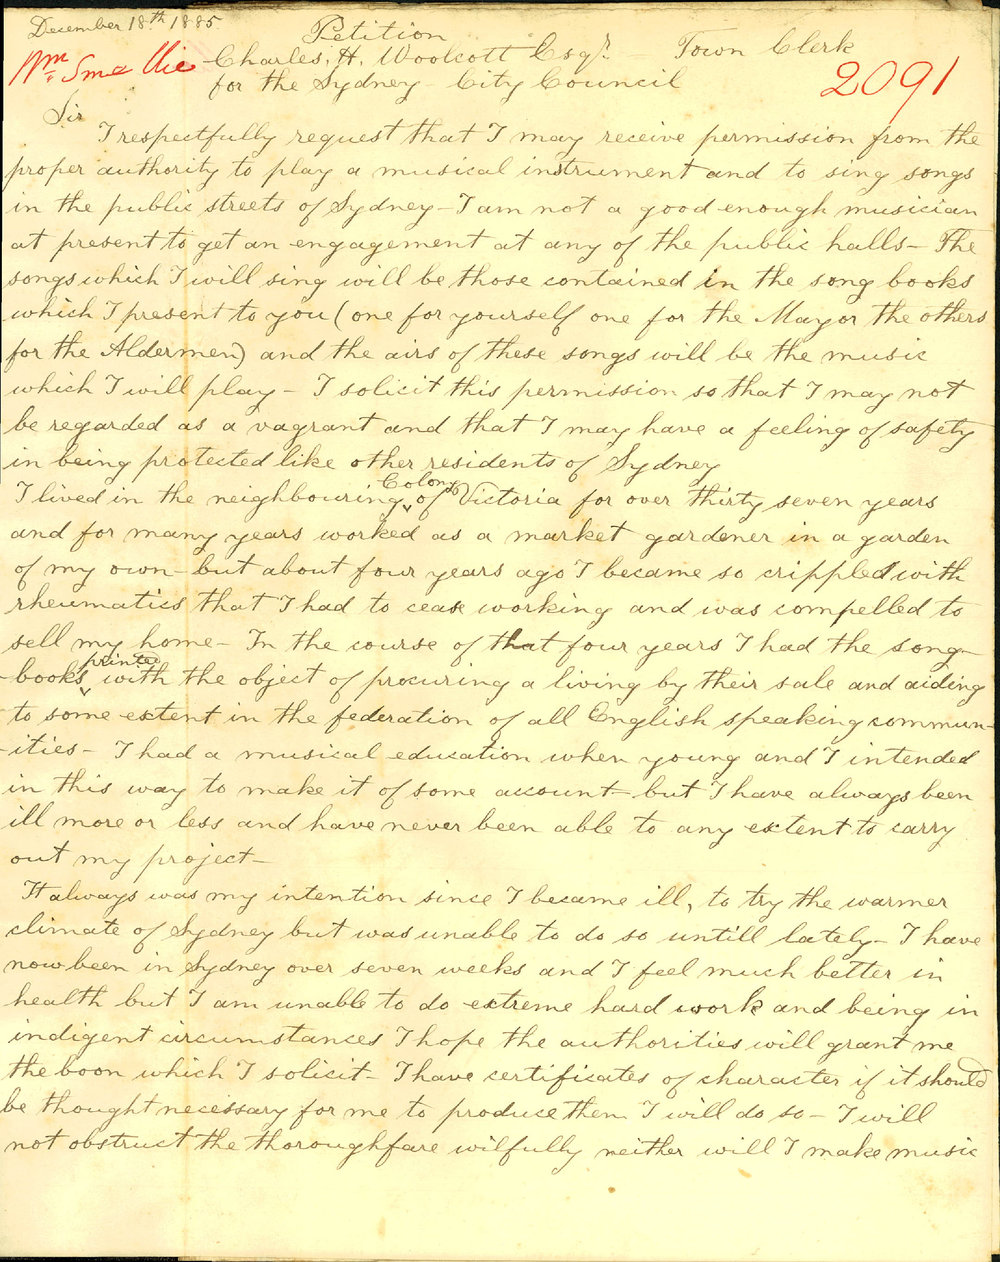 December 18.th 1885.
Petition
Wm Smellie
Charles. H. Woolcott Esqr. Town Clerk
2091
for the Sydney City Council
Sir
I respectfully request that I may receive permission from the
proper authority to play a musical instrument and to sing songs
in the public streets of Sydney - I am not a good enough musician
at present to get an engagement at any of the public halls - The
songs which I will sing will be those contained in the song books
which I present to you (one for yourself one for the Mayor the others
for the Aldermen) and the airs of these songs will be the music
which I will play - I solicit this permission so that I may not
be regarded as a vagrant and that I may have a feeling of safety
in being protected like other residents of Sydney
Colony
I lived in the neighbouring of Victoria for over thirty seven years
and for many years worked as a market gardener in a garden
of my own - but about four years ago I became so crippled with
rheumatics that I had to cease working and was compelled to
sell my home - In the course of that four years I had the song-
printed
-books with the object of procuring a living by their sale and aiding
to some extent in the federation of all English speaking commun-
-ities - I had a musical education when young and I intended
in this way to make it of some account - but I have always been
ill more or less and have never been able to any extent to carry
out my project -
It always was my intention since I became ill, to try the warmer
climate of Sydney but was unable to do so untill lately - I have
now been in Sydney over seven weeks and I feel much better in
health but I am unable to do extreme hard work and being in
indigent circumstances I hope the authorities will grant me
the boon which I solicit - I have certificates of character if it should
be thought necessary for me to produce them I will do so - I will
not obstruct the thoroughfare wilfully neither will I make music